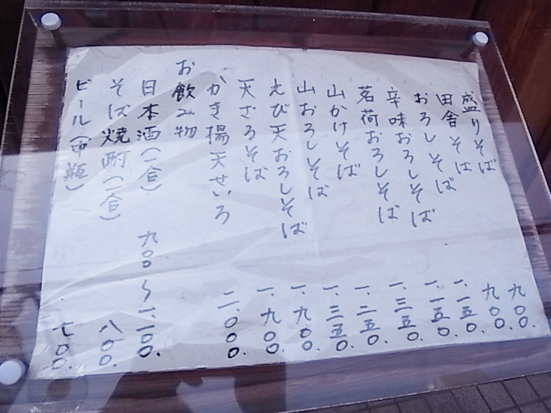 盛りそば 九〇〇.
田舎そば 九〇〇.
おろしそば 一.一五〇.
辛味おろしそば 一.一五〇.
茗荷おろしそば 一.三五〇.
山かけそば 一.二五〇.
山おろしそば 一.三五〇.
えび天おろしそば 一.九〇〇.
天ざるそば 一.九〇〇.
かき揚天せいろ 二.〇〇〇.
お飲み物
日本酒(一合) 九〇〇〜一.一〇〇.
そば焼酎(一合) 八〇〇.
ビール(中瓶) 七〇〇.